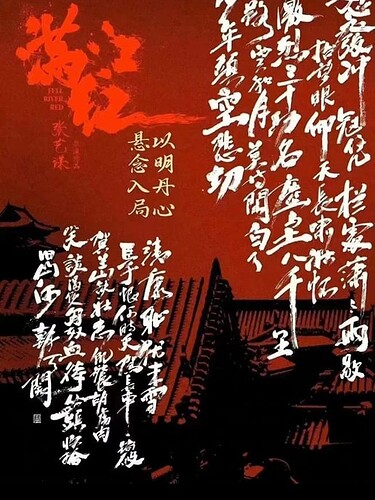 满江红
FULL RIVER RED
张艺谋
以明丹心
悬念入局
怒髮冲冠凭栏处潇潇雨歇
抬望眼仰天长啸壮怀
激烈三十功名尘土八千里
路云和月莫等闲白了
少年头空悲切
靖康耻犹未雪
臣子恨何时灭驾长车踏破
贺兰山缺壮志饥餐胡虏肉
笑谈渴饮匈奴血待从头收拾
旧山河朝天阙